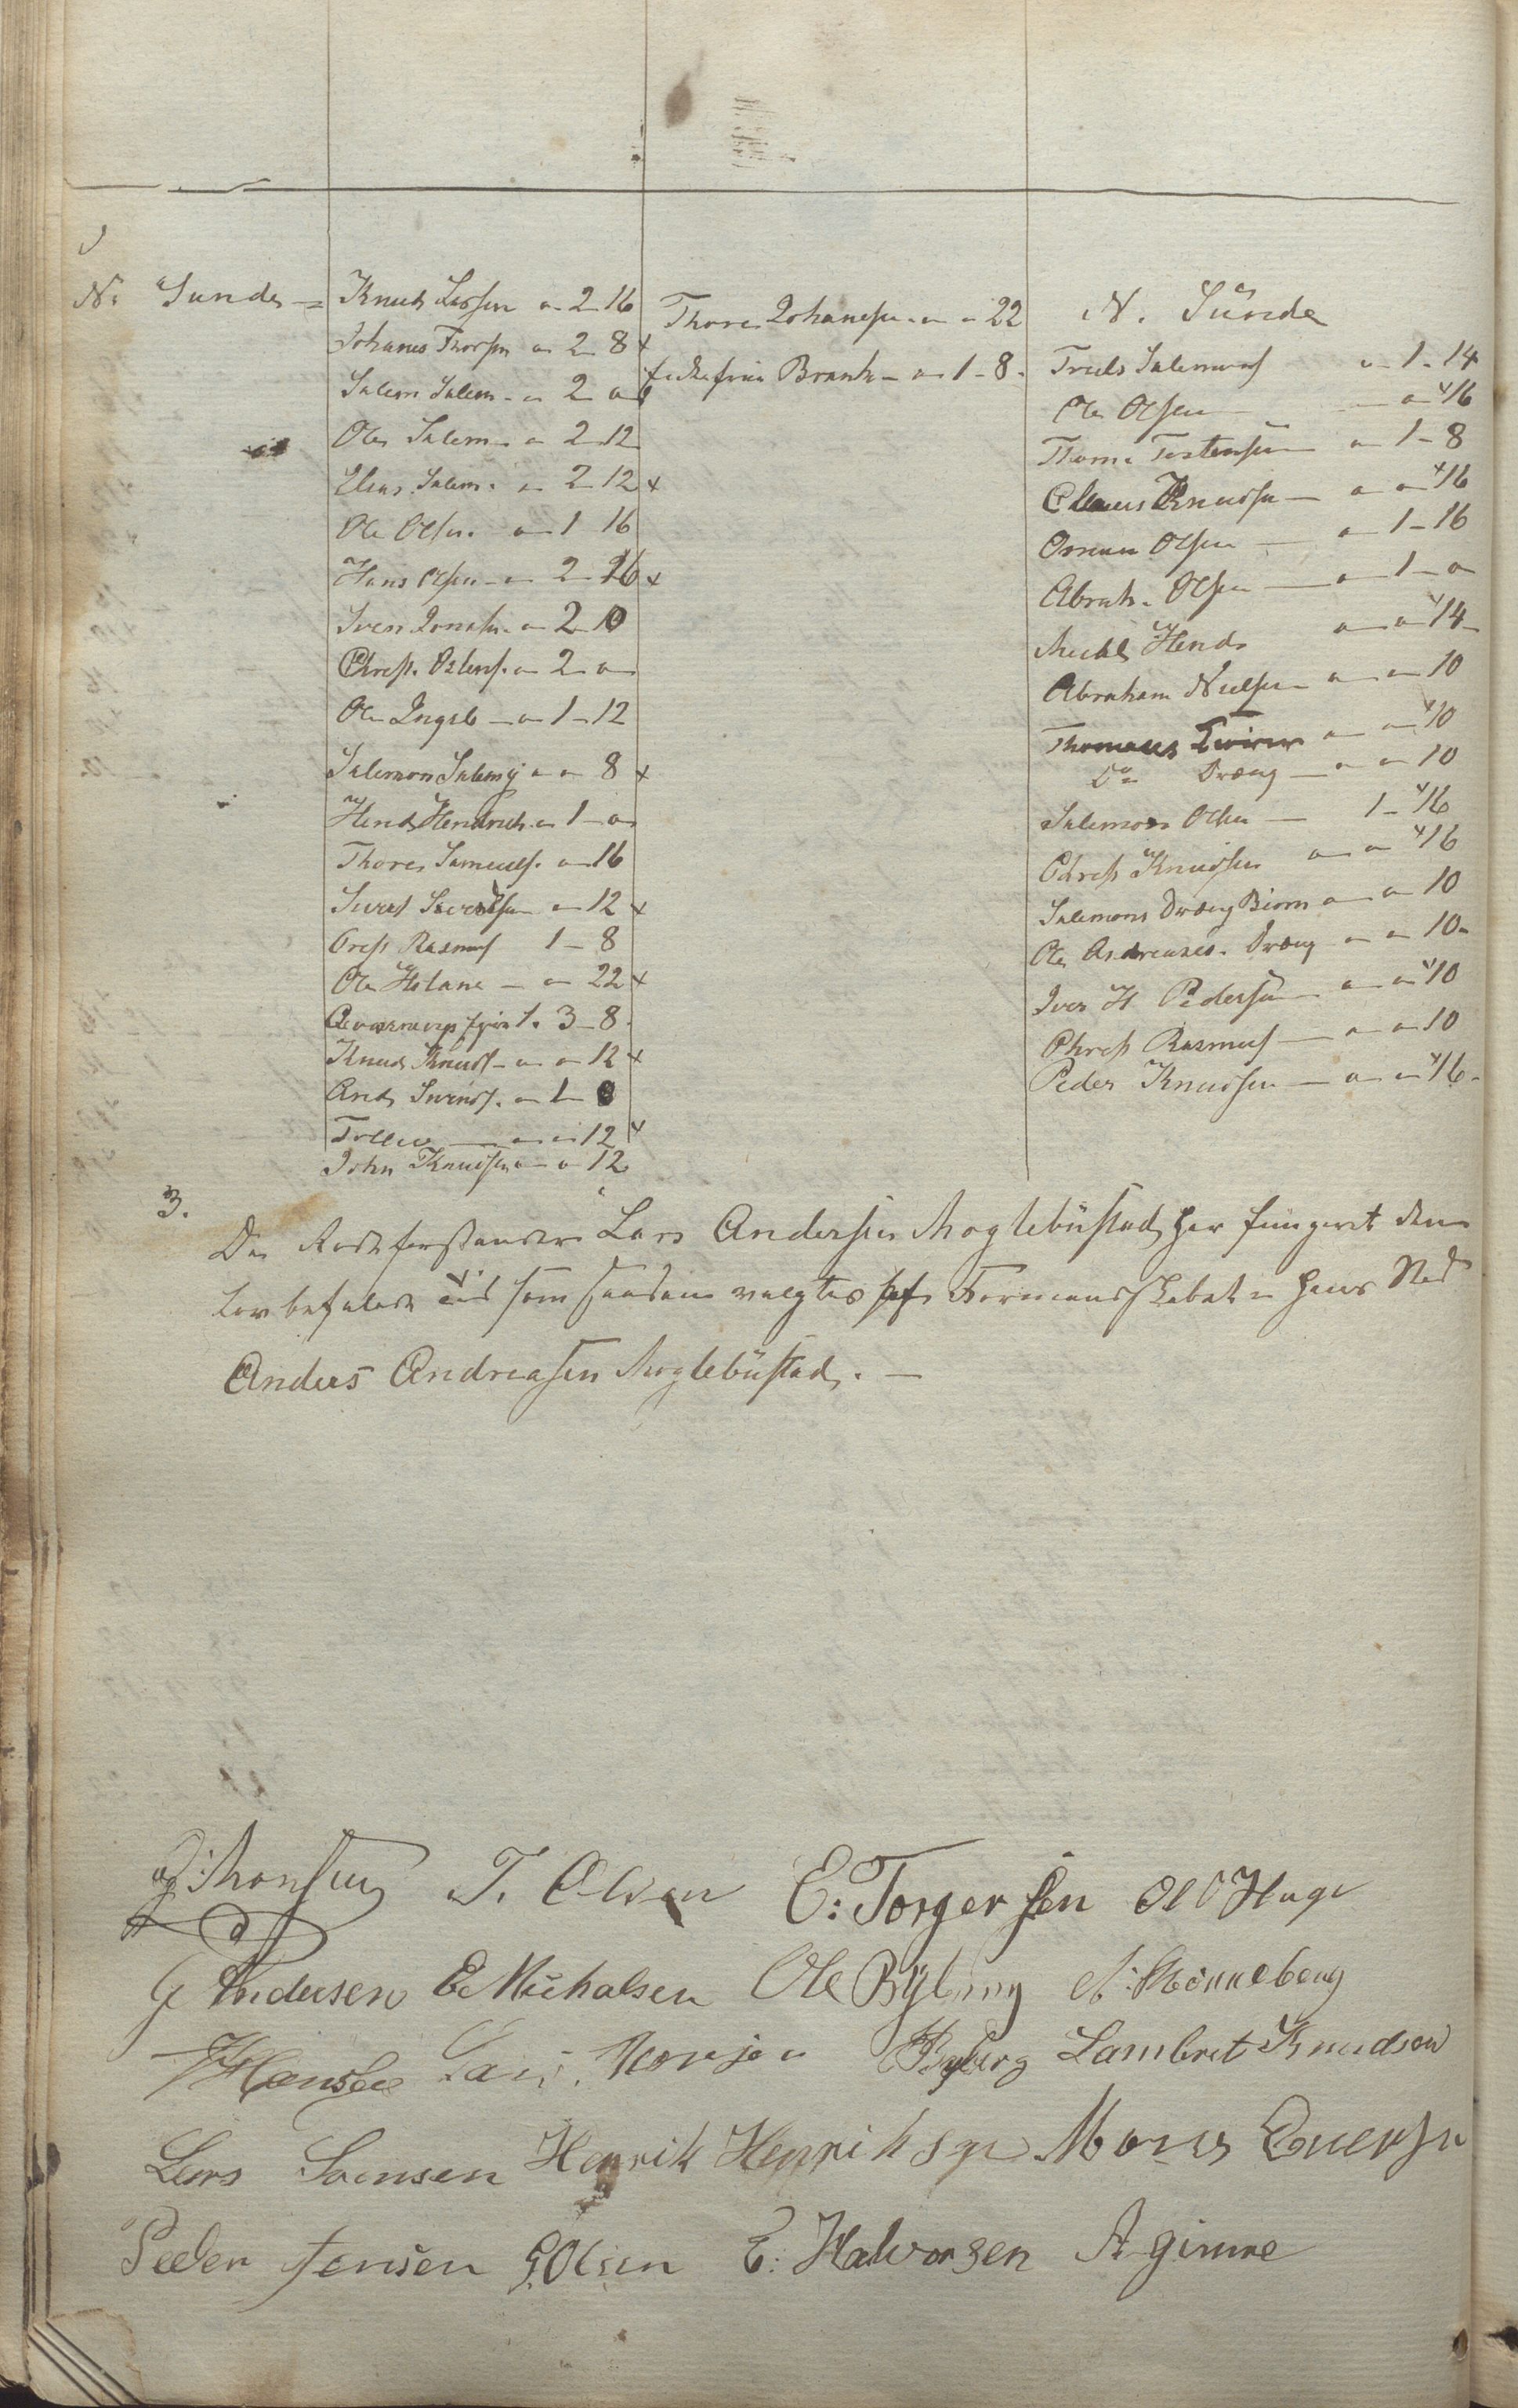 N. Sunde =
Knud Larsen " 2 16
Johanes Thorsen " 2 8 x
Salem Salem. " 2 "
Ole Salem. " 2 12
Elias Salem. " 2 12 x
Ole Olsen. " 1 16
Hans Olsen " 2 16 x
Sven Jonasen. " 2
Chrest. Ostens. " 2 "
Ole Ingeb " 1 12
Salemon Salem " " 8 x
Hend Hendrich. " 1 "
Thore Samuels. " 16
Sivert Sivertsen " 12 x
Crest Rasmus 1 8
Ole Helane " 22 x
3 8.
Knud Knuds " " 12 x
And Svends. " 1
Tollev " " 12 x
John Knudsen " " 12
Thore Johanesen " " 22
Brank " 1 8.
N. Sunde
Truls Salemons " 1 14
Ole Olsen " x16
Thom. Tostensen " 1 8
Claus Knudsen " " x16
Osmun Olsen " 1 16
Abrah. Olsen " 1 "
Michl Hend " " x14
Abraham Nielsen " " 10
Thomases " " x10
Do Dræng " " 10
Salemon Olsen 1 x16
Chrest Knudsen " " x16
Salemons Dræng Biørn " " 10
Ole Andreases. Dræng " " 10
Iver H Pedersen " " x10
Chrest Rasmus " " 10
Peder Knudsen " " x16.
3.
Da Rodeforstander Lars Andersen Moglebüstad har fungeret den
lovbefalede Tid som saadan valgtes af Formandskabet i hans Sted
Anders Andreasen Moglebüstad. —
T. Olsen E: Torgersen Ol O Hage
G Andersen E Michalsen Ole Byberg N: Rønneberg
Hansen Lars. Monsen Byberg Lambret Knudsen
Lars Svensen Henrik Henriksen Mons
Peder Jensen G. Olsen E: Halvorsen A Gimre